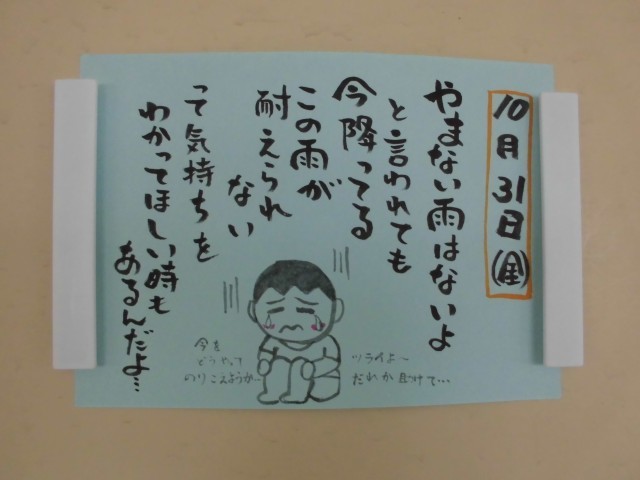 10月31日(金)
やまない雨はないよ
と言われても
今降ってる
この雨が
耐えられ
ない
って気持ちを
わかってほしい時も
あるんだよ…
ツライよ～
だれか助けて…
今を
どうやって
のりこえようか…